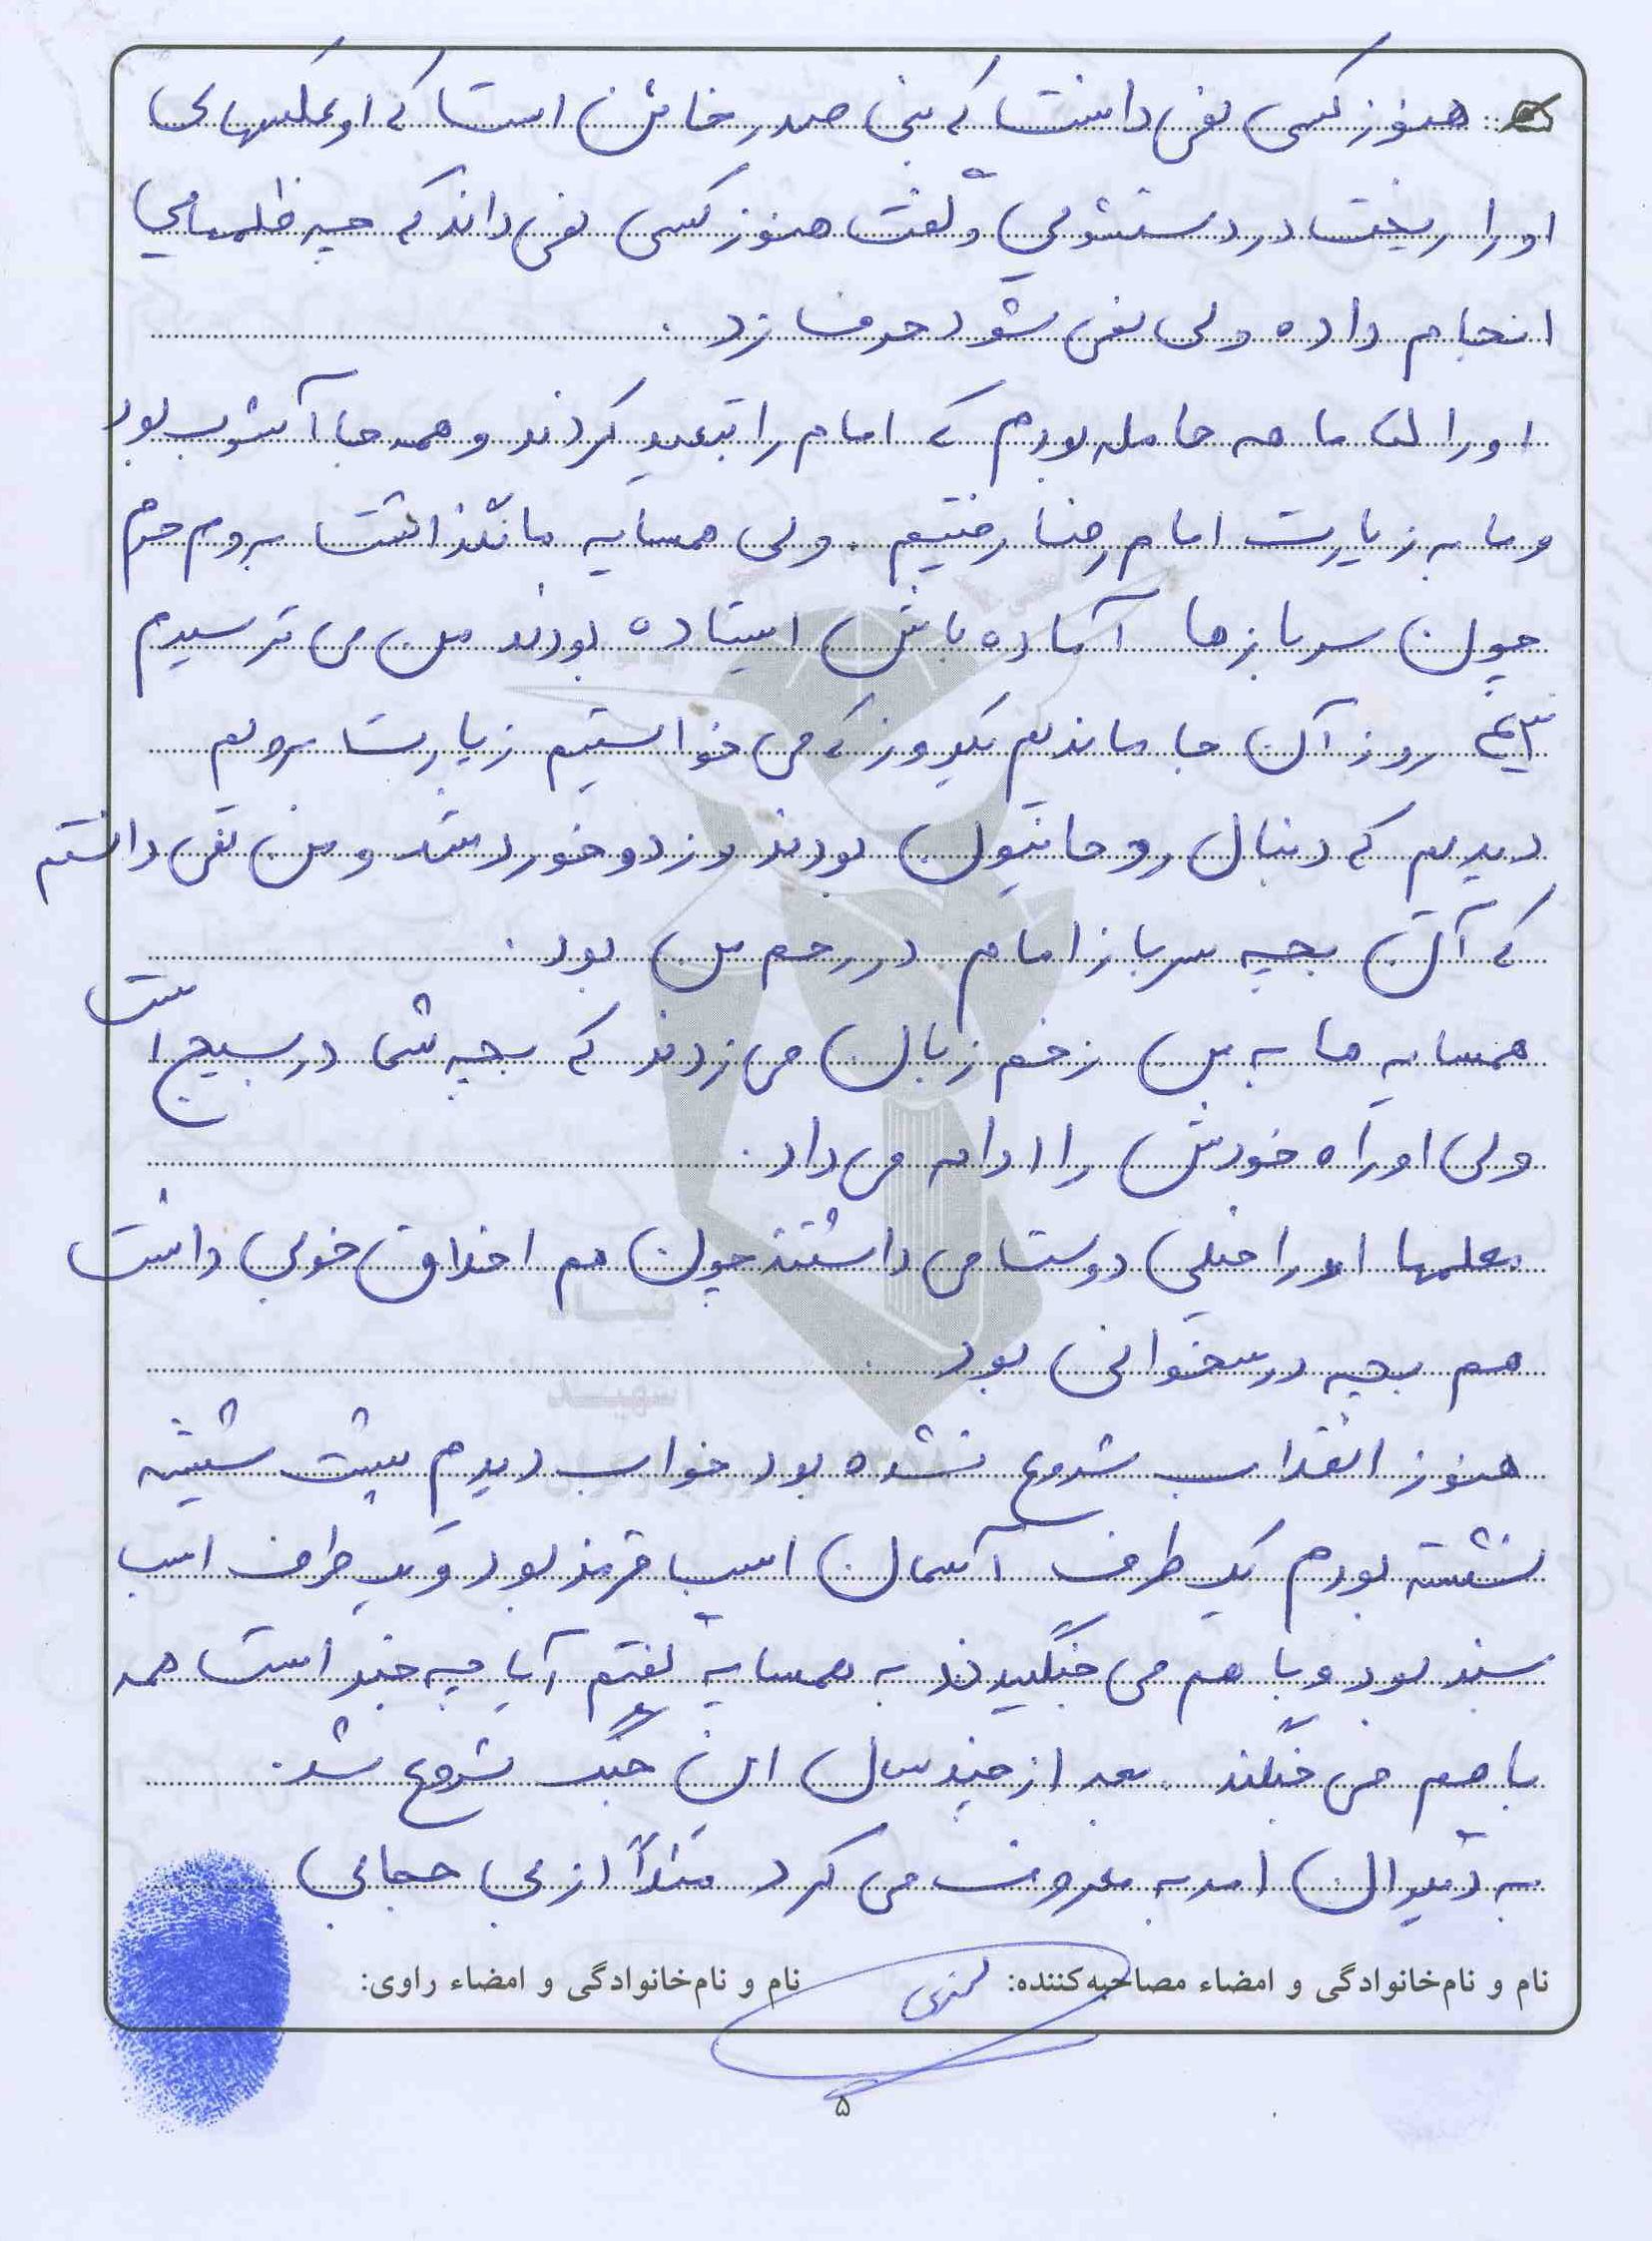 هنوز کسی نمی دانست که بنی صدر خائن است که او عکسهای
او را ریخت در دستشویی و گفت هنوز کسی نمی داند که چه ظلمهایی
انجام داده ولی نمی شود حرف زد .
او را ماهه حامله بودم که امام را تبعید کردند و همه جا آشوب بود
و ما به زیارت امام رضا رفتیم . ولی همسایه ما نگذاشت برویم حرم
چون سربازها آماده باش ایستاده بودند من می ترسیدم
روز آن جا ماندیم یکروز که می خواستیم زیارت برویم
دیدیم که دنبال روحانیون بودند و زد و خورد شد و من نمی دانستم
که آن بچه سرباز امام در رحم من بود .
همسایه ها به من زخم زبان می زدند که بچه شما در بسیج است
ولی او راه خودش را ادامه می داد .
معلمها او را خیلی دوست می داشتند چون هم اخلاق خوبی داشت
هم بچه درسخوانی بود .
هنوز انقلاب شروع نشده بود خواب دیدم پشت شیشه
نشسته بودم یک طرف آسمان اسب قرمز بود و یک طرف اسب
سبز بود و با هم می جنگیدند به همسایه گفتم آیا چه خبر است همه
با هم می جنگند . بعد از چند سال این جنگ شروع شد .
به دیگران امر به معروف می کرد مثلاً از بی حجابی
نام و نام‌خانوادگی و امضاء مصاحبه‌کننده: نام و نام‌خانوادگی و امضاء راوی:
۵